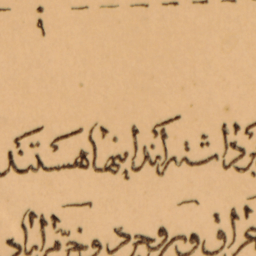 برداشته‌اند اینها هستند
عراق و بروجرد و خرم‌آباد